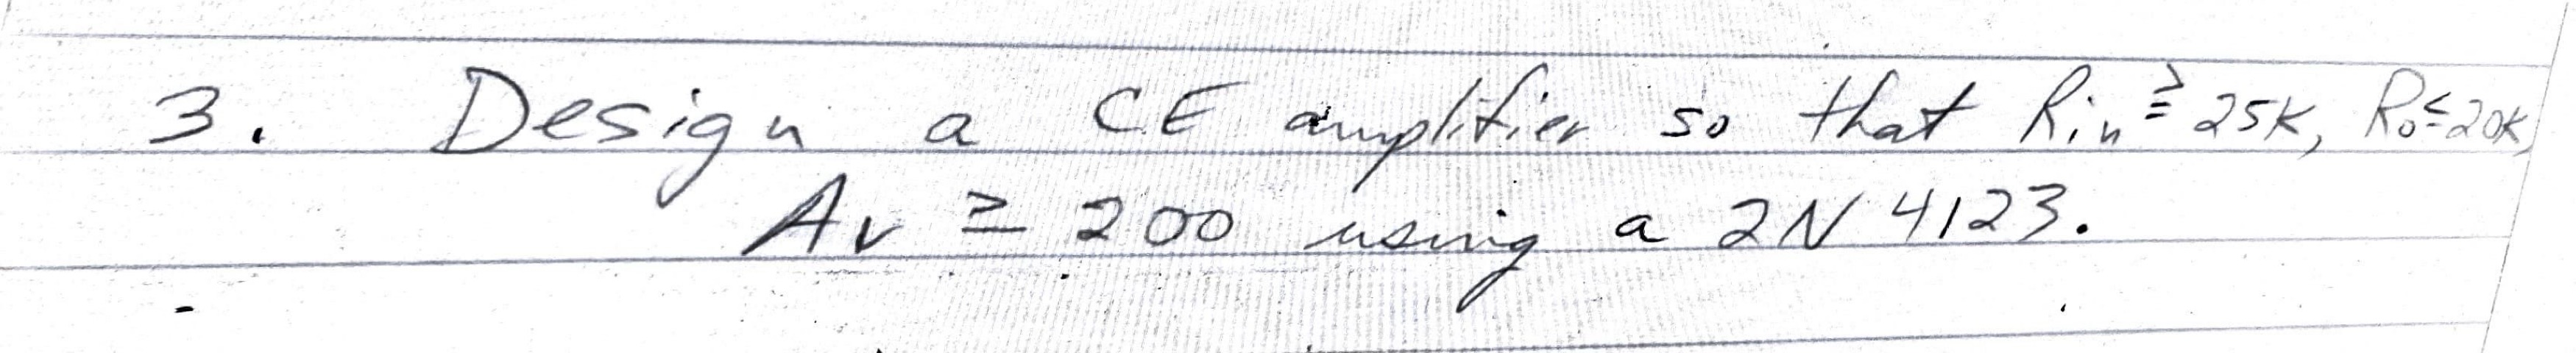 3. Design a CE amplifier so that Rin ≥ 25K, Ro ≤ 20K,
Av ≥ 200 using a 2N4123.